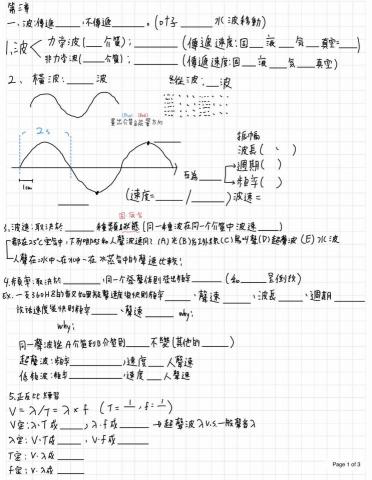 第三章
一、波傳遞____,不傳遞____。(叶子____水波移動)
1.波
力學波(____介質):____(傳遞速度:固__液__氣__真空=__)
非力學波(____介質):____(傳遞速度:固__液__氣__真空)
2、橫波:____波 縱波:____波
畫出介質&能量方向
2s
1cm
振幅
波長( 、 )
互為____ 週期( )
頻率( )
(速度=____/____) 波速=
固液氣
3.波速:取決於____種類&狀態(同一種波在同一個介質中波速____)
都在25℃空氣中,下列哪些和人聲波速同? (A)光(B)吉他&鋼琴(C)鳥叫聲(D)超聲波(E)水波
人聲在冰中、在水中、在水蒸氣中的聲速比較:
4.頻率:取決於____,同一個發聲体則發出頻率____(如____是例外)
Ex. 一支360HZ的音叉如果敲擊速度後快則頻率____、聲速____,波長____、週期____
說話速度後快則頻率____、聲速____ why:
why:
同一聲波從A介質到B介質則____不變(其他的____)
超聲波:頻率____,速度____人聲速
低頻波:頻率____,速度____人聲速
5.正反比練習
V = λ/T = λ × f (T = 1/ , f = 1/ )
V定:λ.T成____,λ.f成____→超聲波λ v.s.一般聲音λ
λ定:V.T成____,V.f成____
T定:V.λ成____
f定:V.λ成____
Page 1 of 3